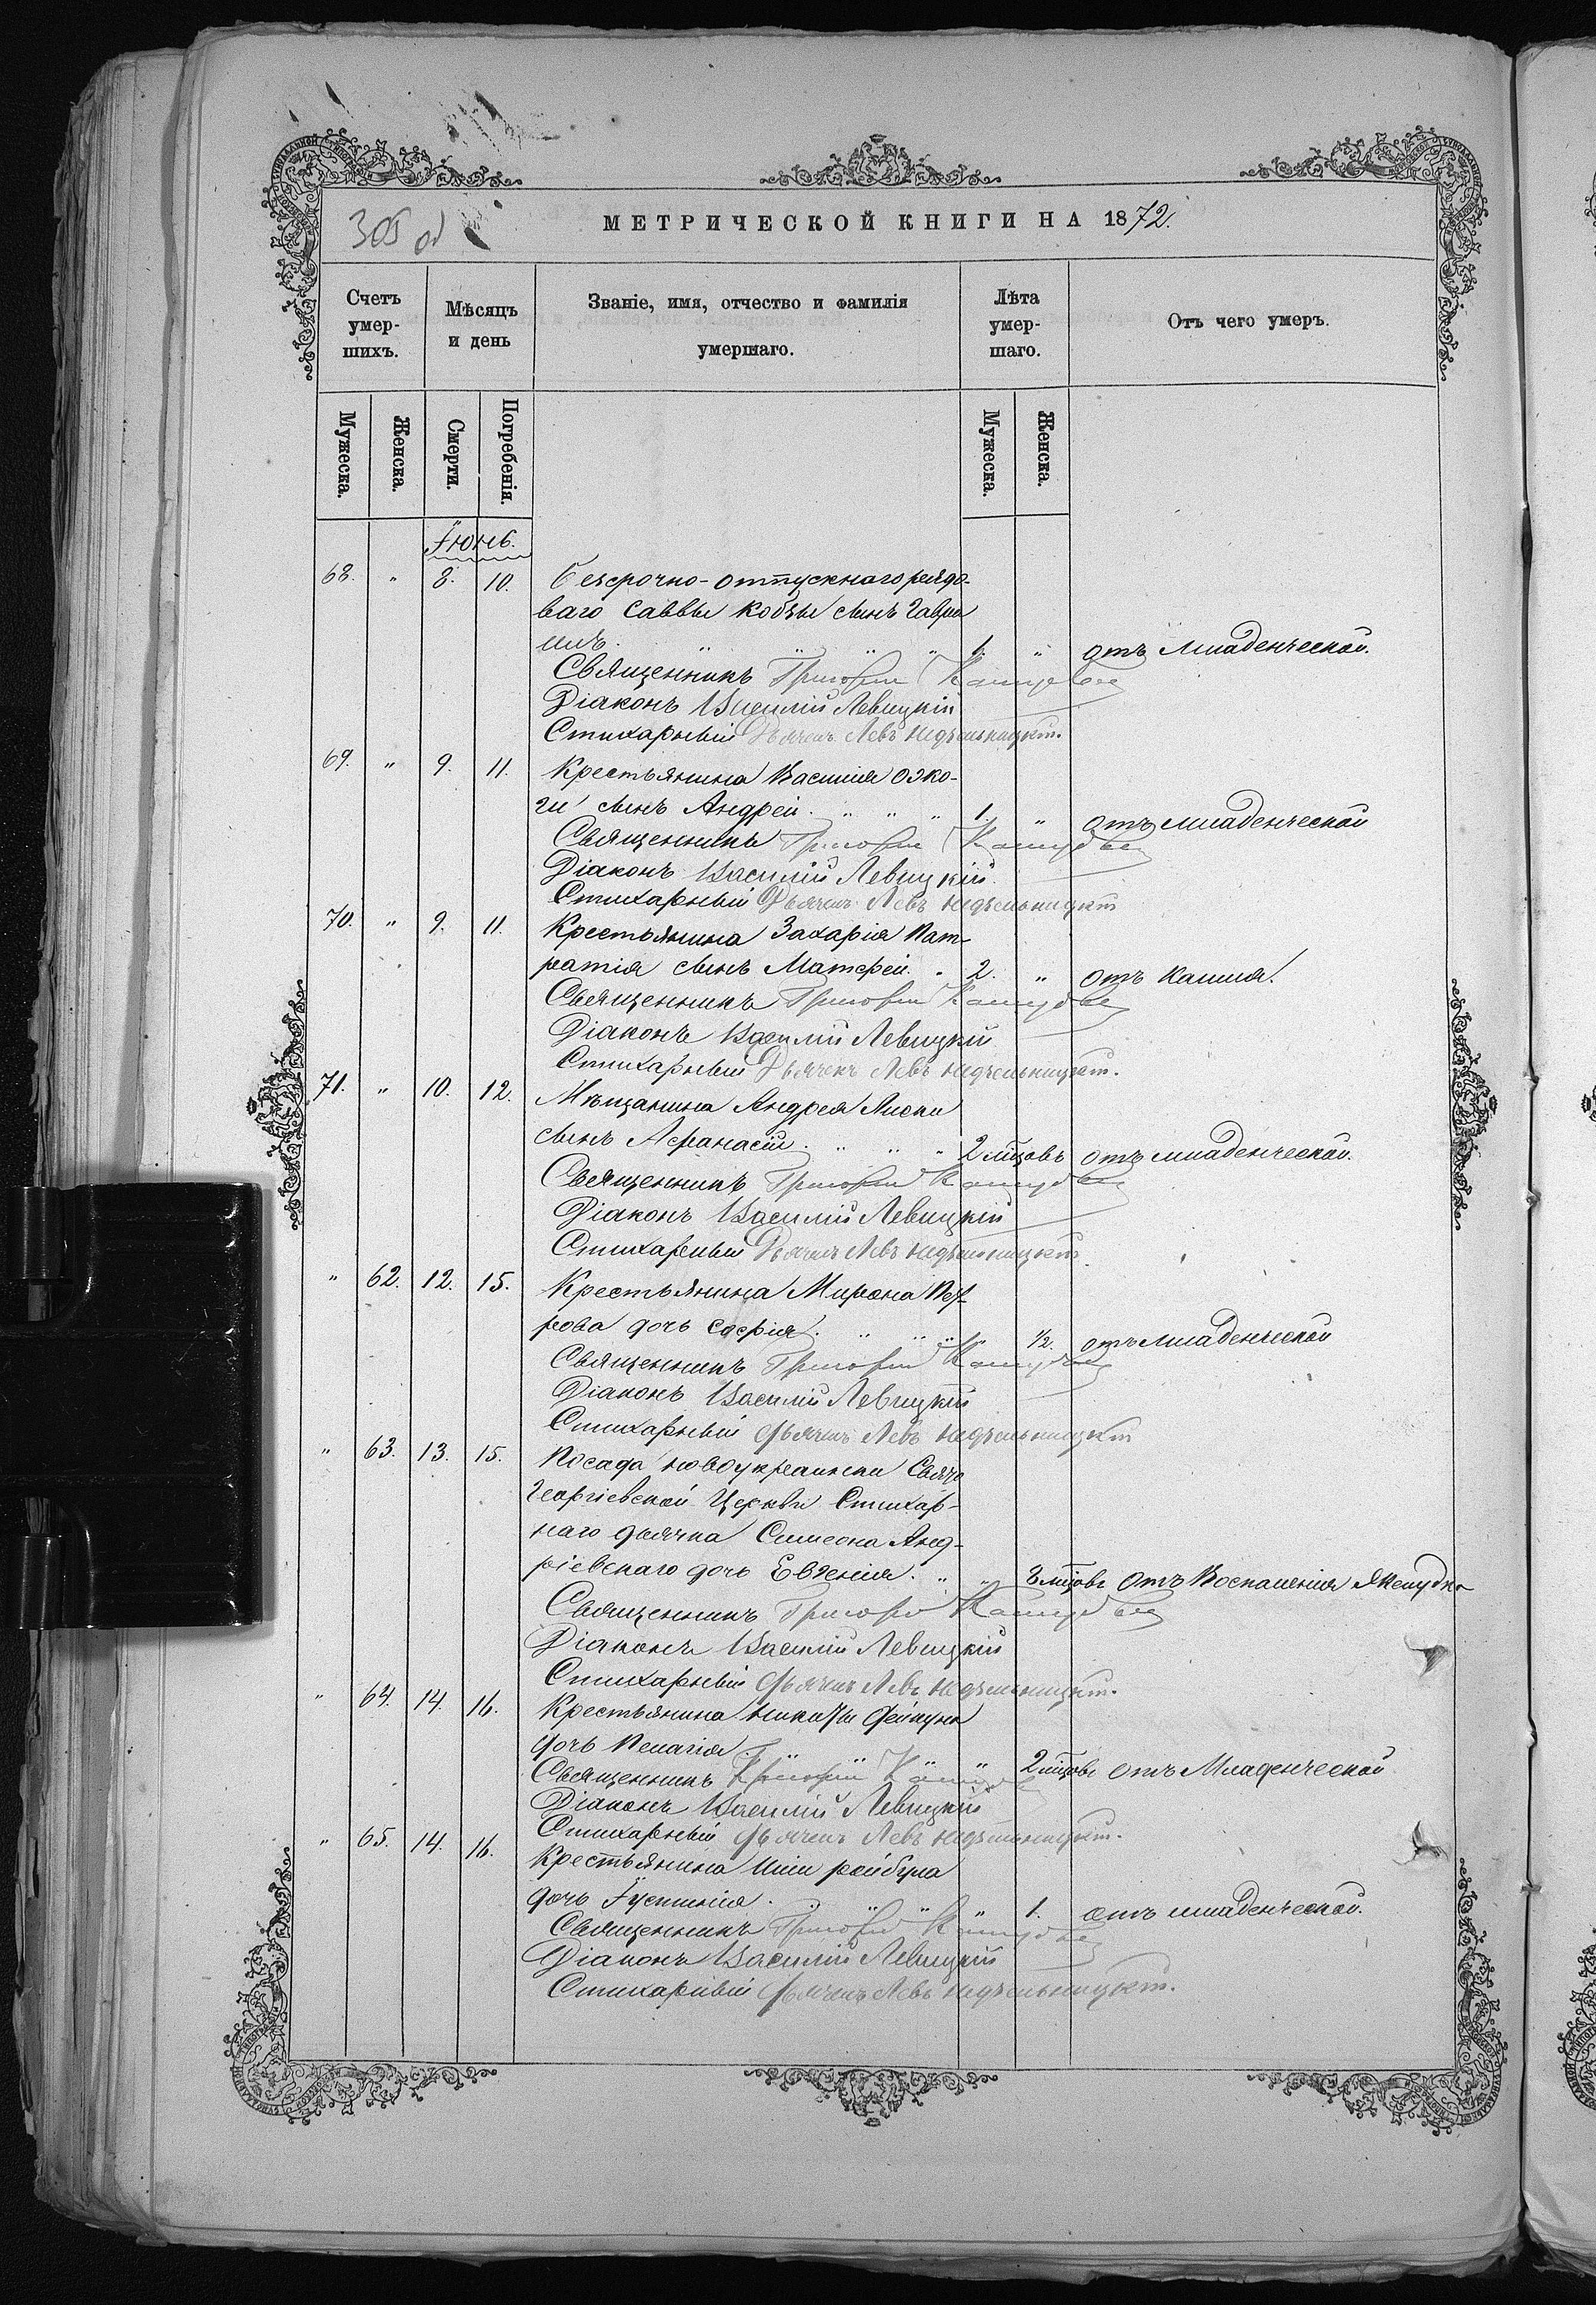 305 об
МЕТРИЧЕСКОЙ КНИГИ НА 1872.
Счетъ умер- шихъ.
Мѣсяцъ и день
Званіе, имя, отчество и фамилія умершаго.
Лѣта умер- шаго.
Отъ чего умеръ.
Мужеска.
Женска.
Смерти.
Погребенія.
Мужеска.
Женска.
Іюнь.
68. " 8. 10. безсрочно-отпускнаго рядо-
ваго Саввы Кобзы сынъ Гаврі
илъ. 1. " отъ младенческой.
Священникъ Григорій
Діаконъ Василій Левицкій
Стихарный Дьячекъ Левъ Недѣльницкій.
69. " 9. 11. Крестьянина Василія
сынъ Андрей. 1. " отъ младенческой
Священникъ Григорій
Діаконъ Василій Левицкій.
Стихарный Дьячекъ Левъ Недѣльницкій
70. " 9. 11. Крестьянина Захарія Пат-
ратія сынъ Матфей. 2. " отъ кашля.
Священникъ Григорій
Діаконъ Василій Левицкій
Стихарный Дьячекъ Левъ Недѣльницкій.
71. " 10. 12. Мѣщанина Андрея
сынъ Афанасій. 2 мѣцовъ отъ младенческой.
Священникъ Григорій
Діаконъ Василій Левицкій
Стихарный Дьячекъ Левъ Недѣльницкій.
" 62. 12. 15. Крестьянина Мирона Пет-
рова дочь Софія. " 1/2. отъ младенческой
Священникъ Григорій
Діаконъ Василій Левицкій
Стихарный Дьячекъ Левъ Недѣльницкій
" 63. 13. 15. Посада Новоукраинки Свято
Георгіевской Церкви Стихар-
наго дьячка Симеона Анд-
ріевскаго дочь Евгенія. " 8 мѣцовъ отъ Воспаленія Желудка
Священникъ Григорій
Діаконъ Василій Левицкій
Стихарный Дьячекъ Левъ Недѣльницкій.
" 64. 14. 16. Крестьянина Никиты
дочь Пелагія. " 2 мѣцовъ отъ Младенческой
Священникъ Григорій
Діаконъ Василій Левицкій
Стихарный Дьячекъ Левъ Недѣльницкій.
" 65. 14. 16. Крестьянина Иліи Ройбула
дочь Іустинія. " 1. отъ младенческой.
Священникъ Григорій
Діаконъ Василій Левицкій
Стихарный Дьячекъ Левъ Недѣльницкій.